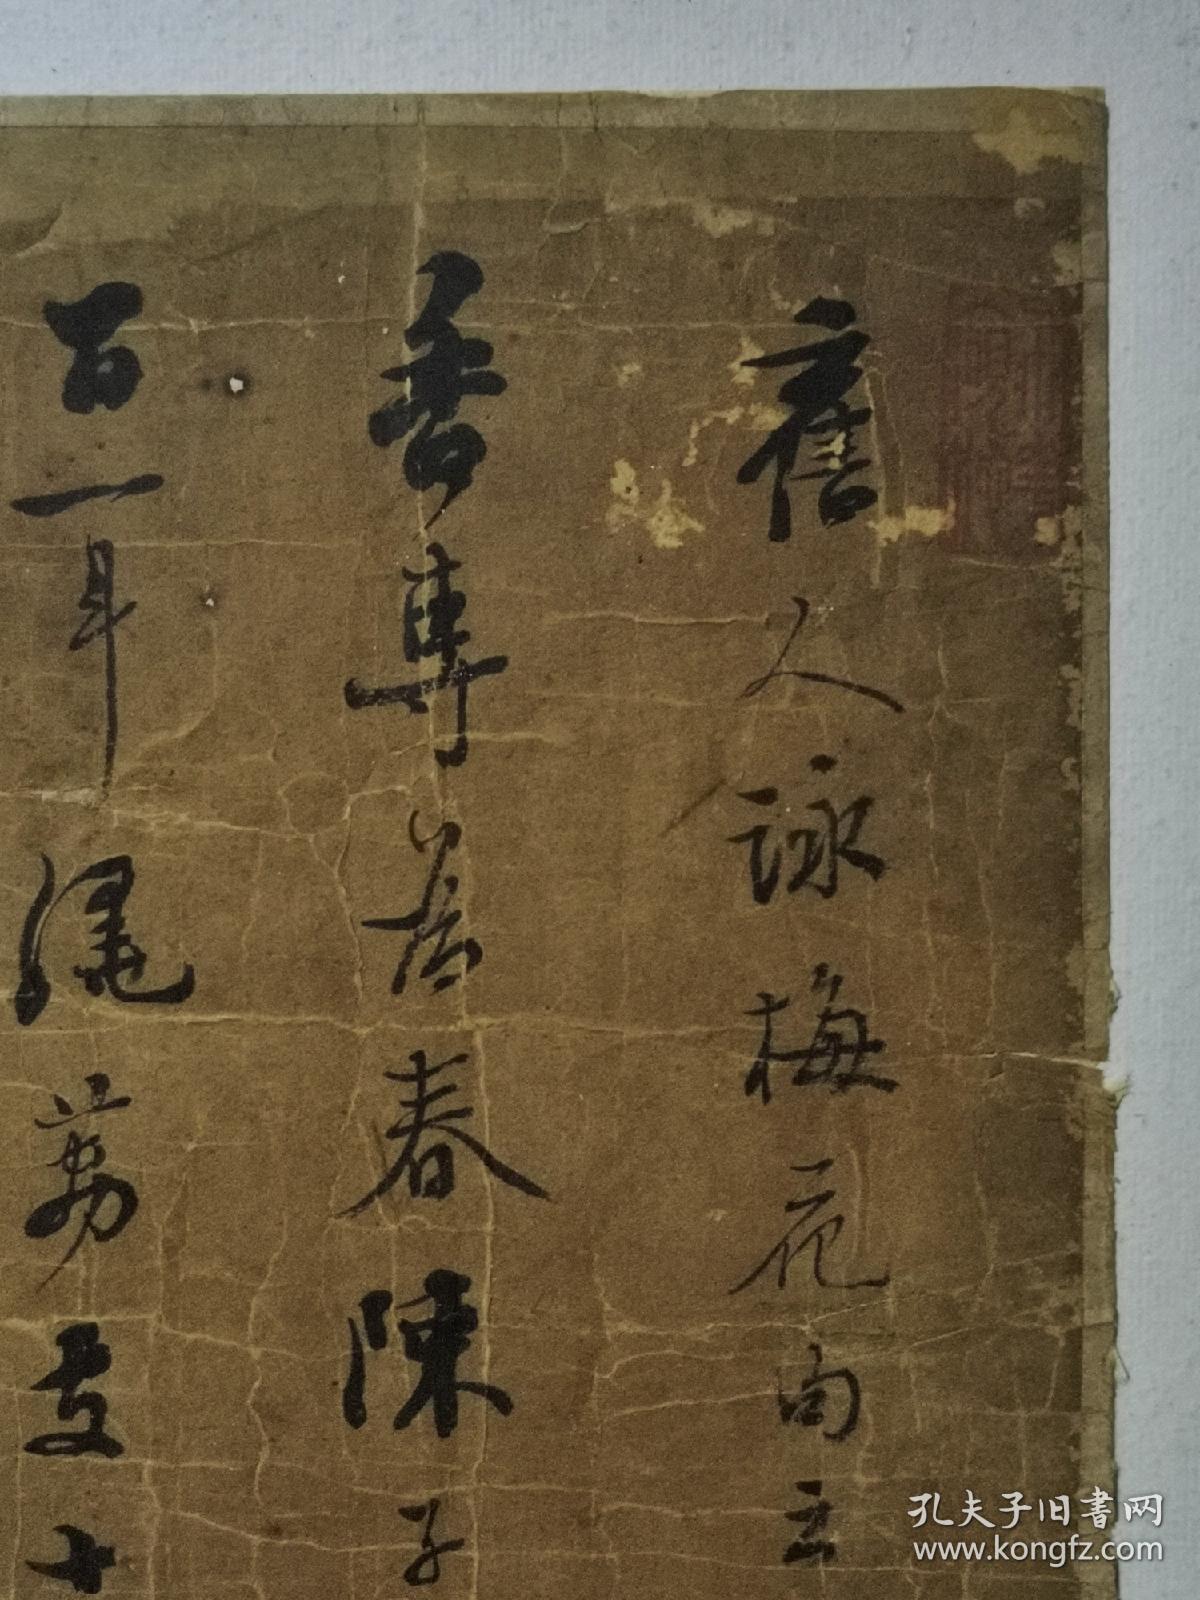 舊人詠梅花句云
香車若春陳子
百一年繩荔支十
孔夫子旧書网
www.kongfz.com